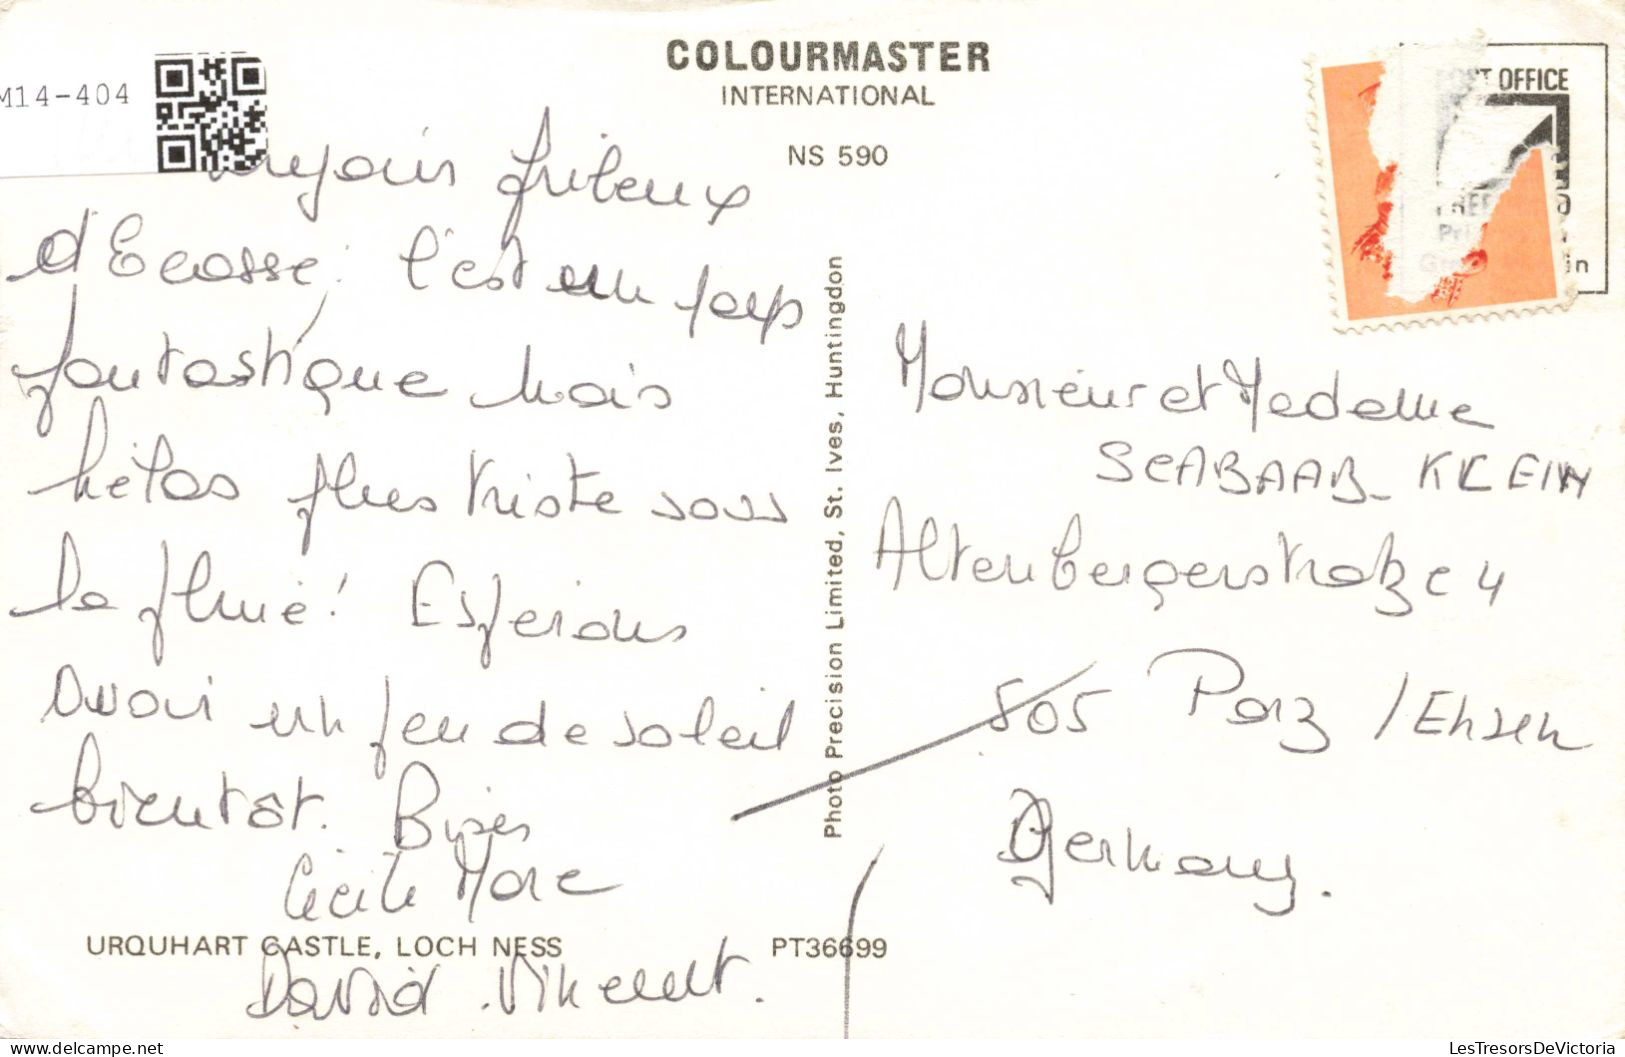 M14-404
COLOURMASTER
INTERNATIONAL
NS 590
frileux
d'Ecosse. C'est un pays
fantastique mais
hélas plus triste sous
la pluie! Espérons
avoir un peu de soleil
bientôt. Bises
Cécile Marc
URQUHART CASTLE, LOCH NESS
David Vincent.
PT36699
Photo Precision Limited, St. Ives, Huntingdon
POST OFFICE
Monsieur et Madame
SCABAAB-KLEIN
Altenbergerstraße 4
505 Porz/Ensen
Germany.
LesTresorsDeVictoria
delcampe.net